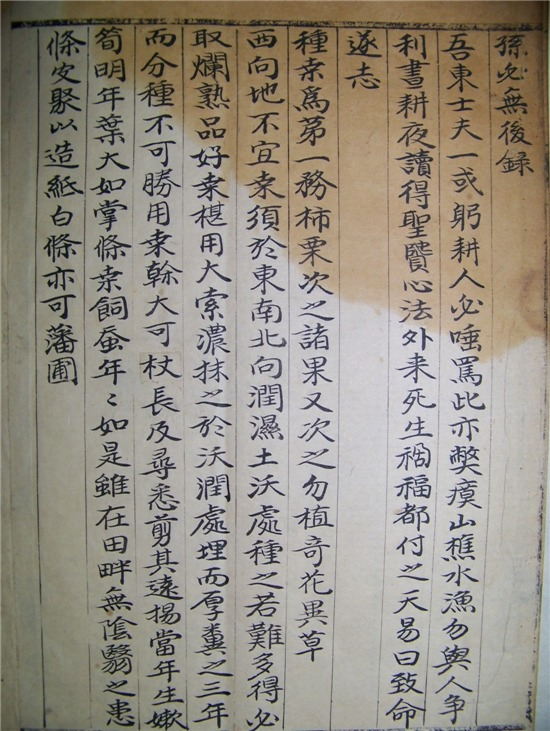 孫必無後録
吾東士夫一或躬耕人必唾罵此亦弊瘼山樵水漁勿與人争
利晝耕夜讀得聖贒心法外来死生禍福都付之天易曰致命
遂志
種桒爲第一務柿栗次之諸果又次之勿植奇花異草
西向地不宜桒須於東南北向潤濕土沃處種之若難多得必
取爛熟品好桒椹用大索濃抹之於沃潤處埋而厚糞之三年
而分種不可勝用桒幹大可杖長及尋悉剪其遠揚當年生嫰
筍明年葉大如掌條桒飼蚕年〻如是雖在田畔無陰翳之患
條皮聚以造紙白條亦可藩圃